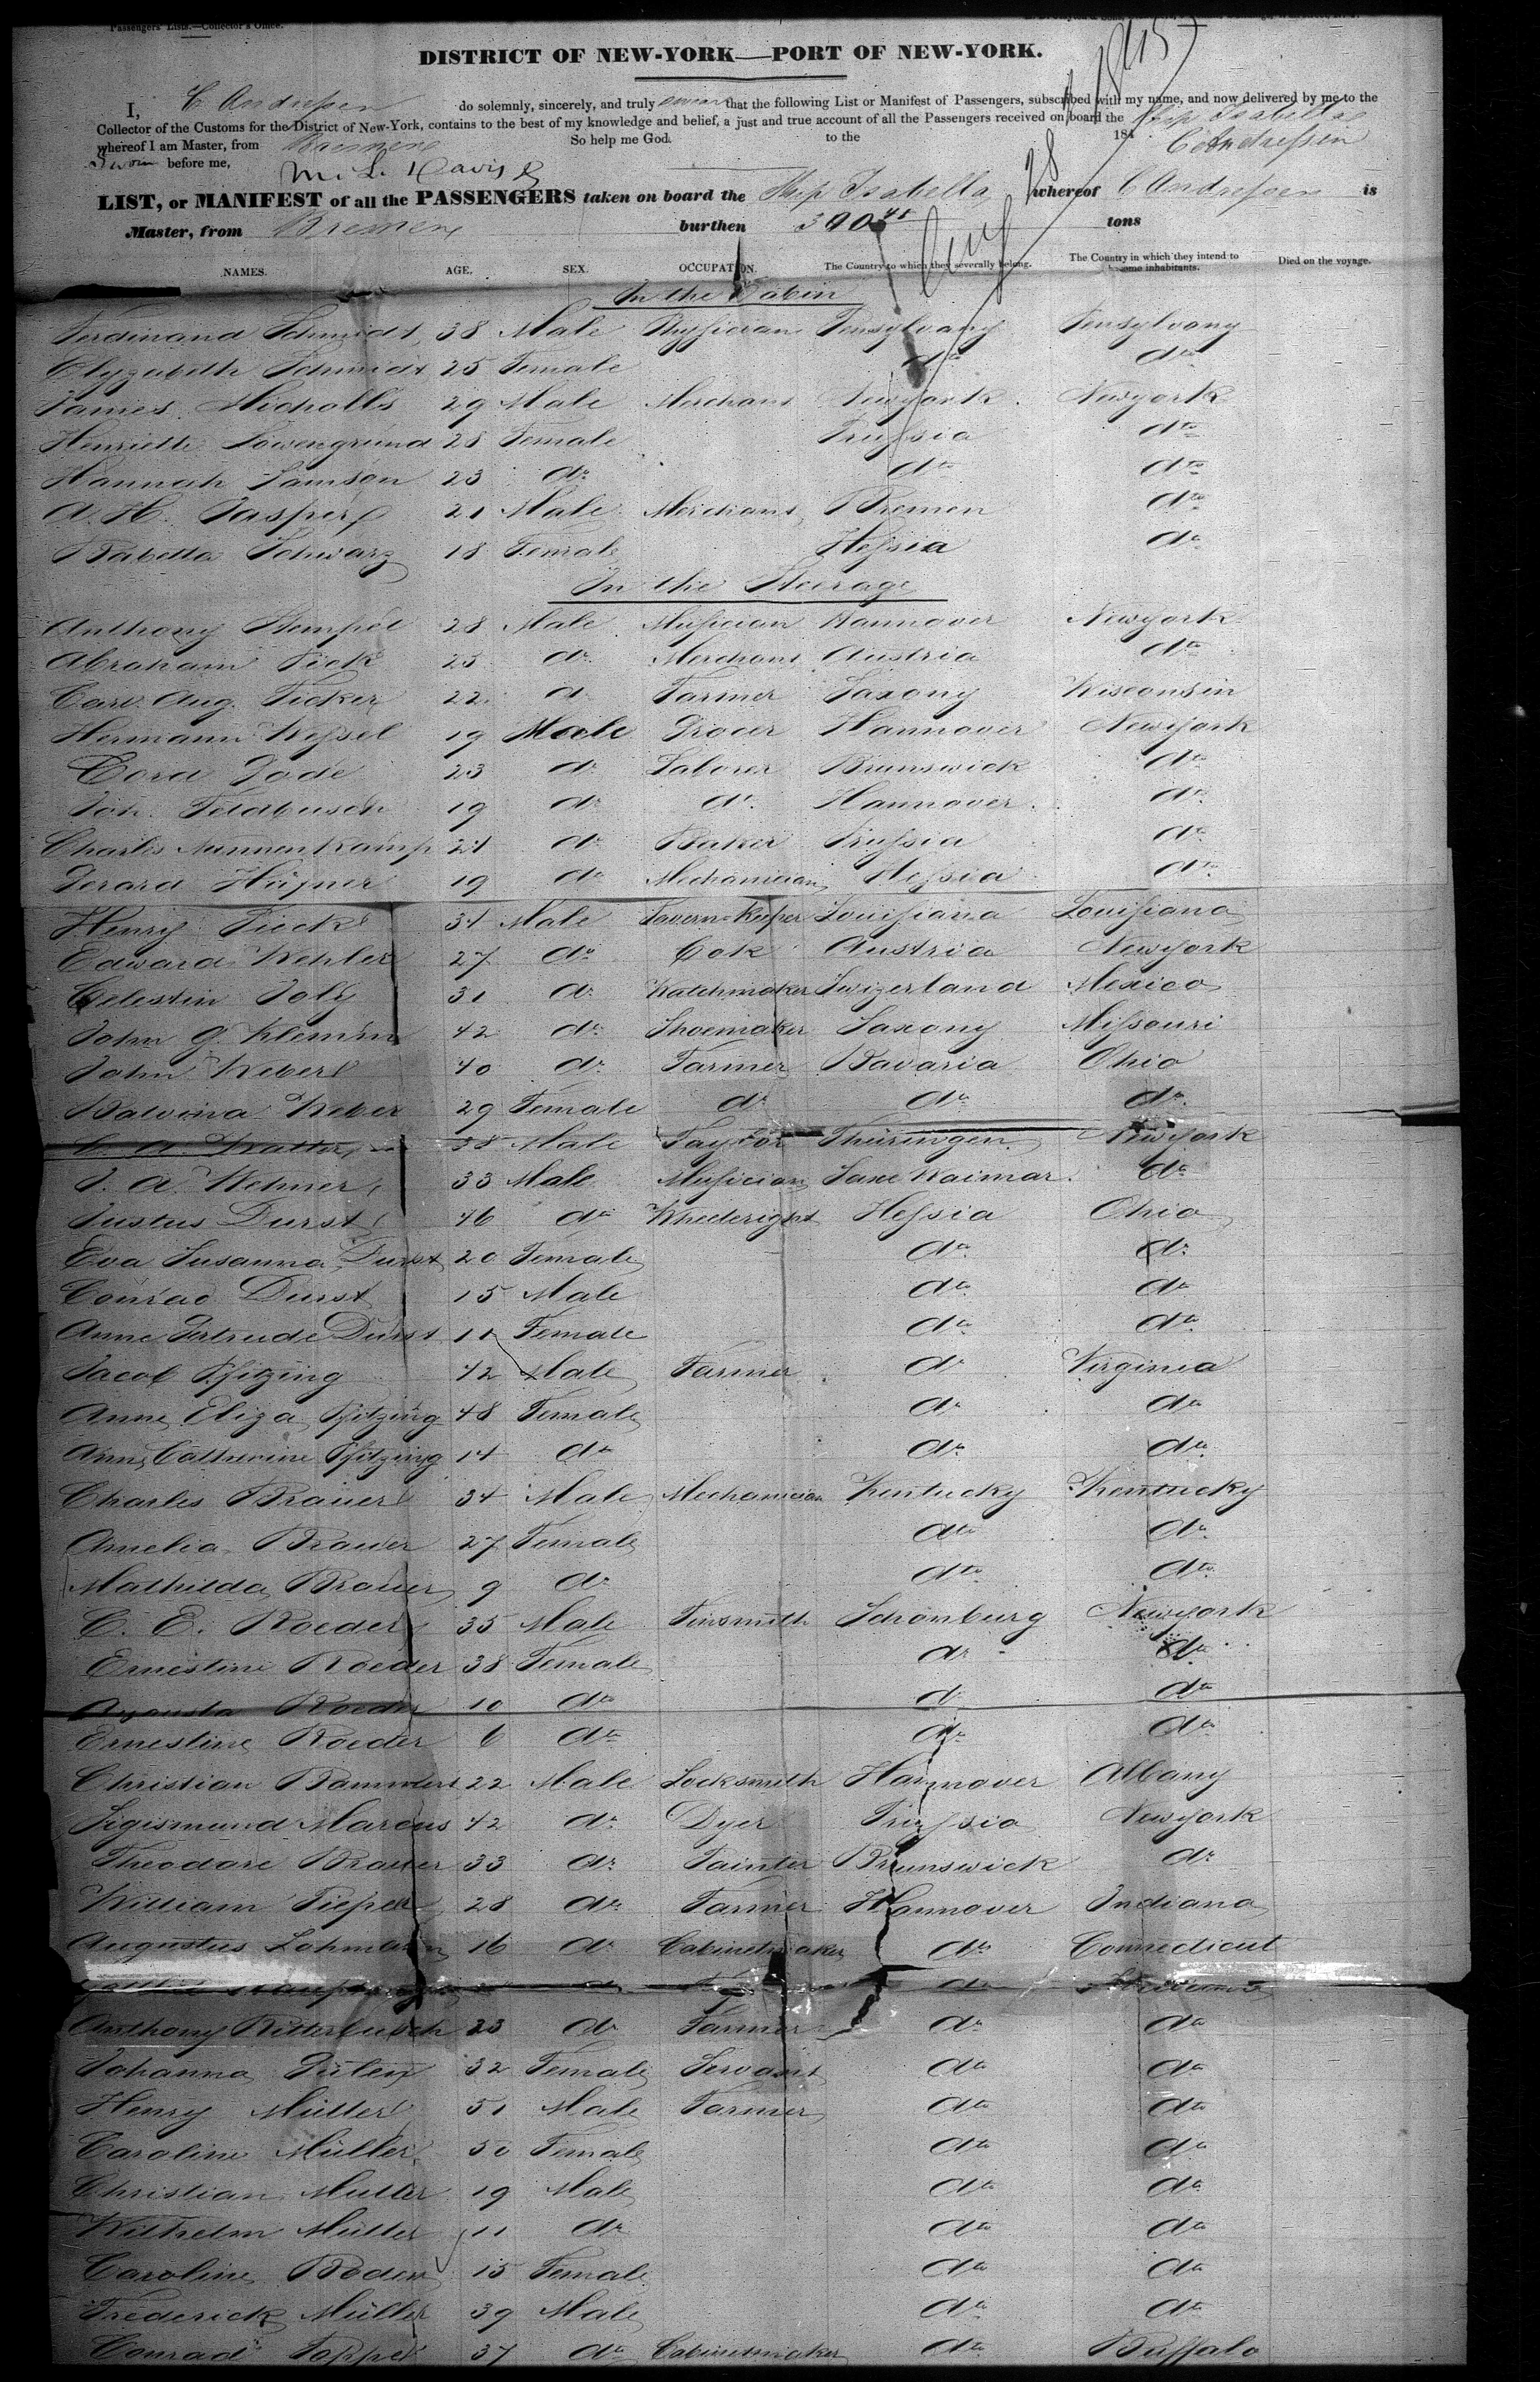 Passengers' Lists.—Collector's Office.
DISTRICT OF NEW-YORK—PORT OF NEW-YORK.
I, C Andressen do solemnly, sincerely, and truly swear that the following List or Manifest of Passengers, subscribed with my name, and now delivered by me to the
Collector of the Customs for the District of New-York, contains to the best of my knowledge and belief, a just and true account of all the Passengers received on board the Ship Isabella
whereof I am Master, from Bremen So help me God. to the 184 C Andressen
Sworn before me, M. L. Davis
LIST, or MANIFEST of all the PASSENGERS taken on board the Ship Isabella whereof C Andressen is
Master, from Bremen burthen tons
28 Aug
NAMES. AGE. SEX. OCCUPATION. The Country to which they severally belong. The Country in which they intend to become inhabitants. Died on the voyage.
In the Cabin
Ferdinand Schmidt 38 Male Physician Pensylvany Pensylvany
Elyzabeth Schmidt 25 Female dto dto
James Nicholls 29 Male Merchant Newyork Newyork
Henriette Lowengrund 28 Female Prussia dto
Hannah Samson 23 do dto dto
A. H. Jasper 21 Male Merchant Bremen dto
Babetta Schwarz 18 Female Hessia do
In the Steerage
Anthony Stempel 28 Male Musician Hannover Newyork
Abraham Pick 25 do Merchant Austria dto
Carl Aug. Ficker 22 d Farmer Saxony Wisconsin
Hermann Wessel 19 Male Grocer Hannover Newyork
Cord Gode 23 do Laborer Brunswick dto
Joh. Feldbusch 19 do do Hannover do
Charles Nunnenkamp 21 do Baker Prussia do
Gerard Hüpner 19 do Mechanician Hessia dto
Henry Fick 34 Male Tavern-Keeper Louisiana Louisiana
Edward Wehler 27 do Cok Austria Newyork
Celestin Joly 31 do Watchmaker Swizerland Mexico
John G. Klemm 42 do Shoemaker Saxony Missouri
John Weber 40 do Farmer Bavaria Ohio
Balvina Weber 29 Female do do do
38 Male Taylor Thüringen Newyork
J. A. Wehner 33 Male Musician Saxe Waimar do
Justus Durst 46 do Wheeleright Hessia Ohio
Eva Susanna Durst 20 Female do do
Conrad Durst 15 Male dto do
Anne Gertrude Durst 11 Female do do
Jacob Pfitzing 42 Male Farmer do Virginia
Anne Eliza Pfitzing 48 Female do do
Ann Catherine Pfitzing 14 do do do
Charles Brauer 34 Male Mechanician Kentucky Kentucky
Amelia Brauer 27 Female dto do
Mathilda Brauer 9 do dto dto
C. E. Roeder 35 Male Tinsmith Schönburg Newyork
Ernestine Roeder 38 Female do do
Augusta Roeder 10 do d do
Ernestine Roeder 6 do do do
Christian Bammert 22 Male Locksmith Hannover Albany
Sigismund Marcus 42 do Dyer Prussia Newyork
Theodore Brauer 33 do Painter Brunswick do
William Pieper 28 do Farmer Hannover Indiana
Augustus Lohmann 16 do Cabinetmaker do Connecticut
do do
Anthony Ritterbusch 23 do Farmer do do
Johanna 32 Female Servant do do
Henry Müller 51 Male Farmer do do
Caroline Müller 50 Female do do
Christian Müller 19 Male do do
Wilhelm Müller 11 do do do
Caroline Boden 15 Female do do
Frederick Müller 39 Male do do
Conrad Poppel 37 do Cabinetmaker do Buffalo